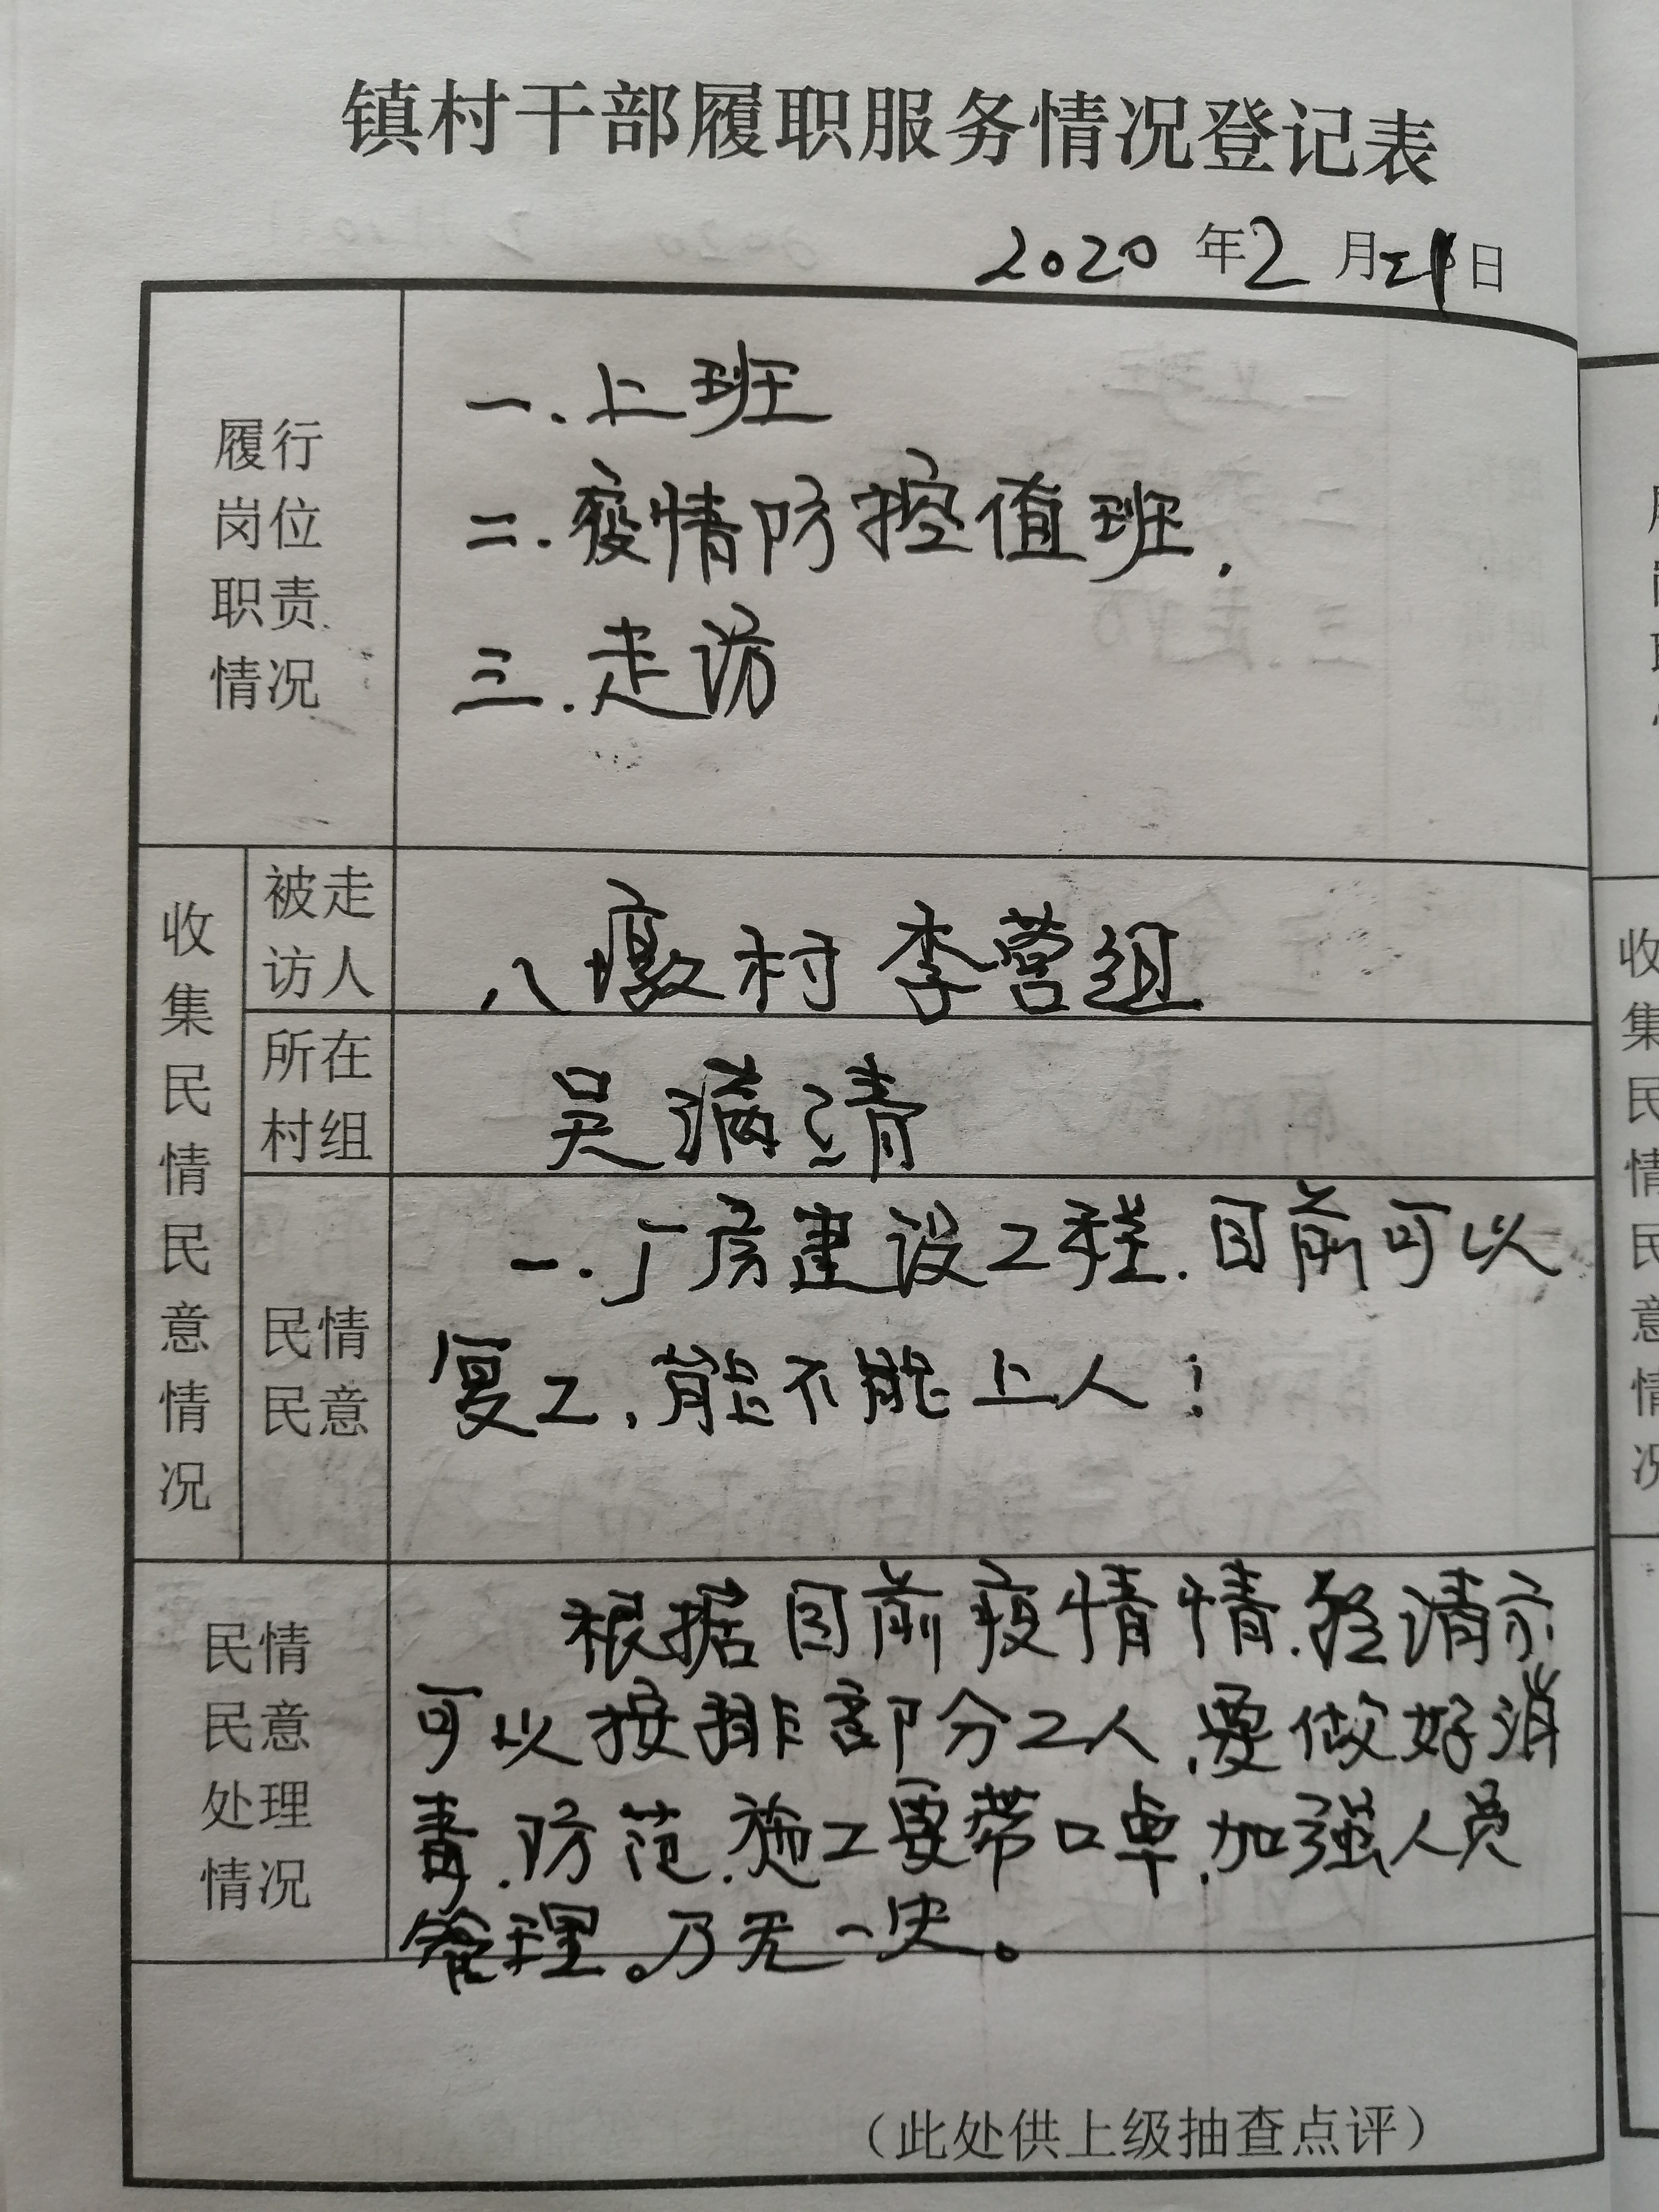 镇村干部履职服务情况登记表
2020年2月21日
履行
岗位
职责
情况
一.上班
二.疫情防控值班.
三.走访
收集民情民意情况
被走
访人
八墩村李营组
所在
村组
吴满清
民情
民意
一.厂房建设工程.目前可以
复工,能不能上人!
民情
民意
处理
情况
根据目前疫情情.经请示
可以按排部分工人.要做好消
毒.防范.施工要带口罩.加强人员
管理。乃无一失。
(此处供上级抽查点评)